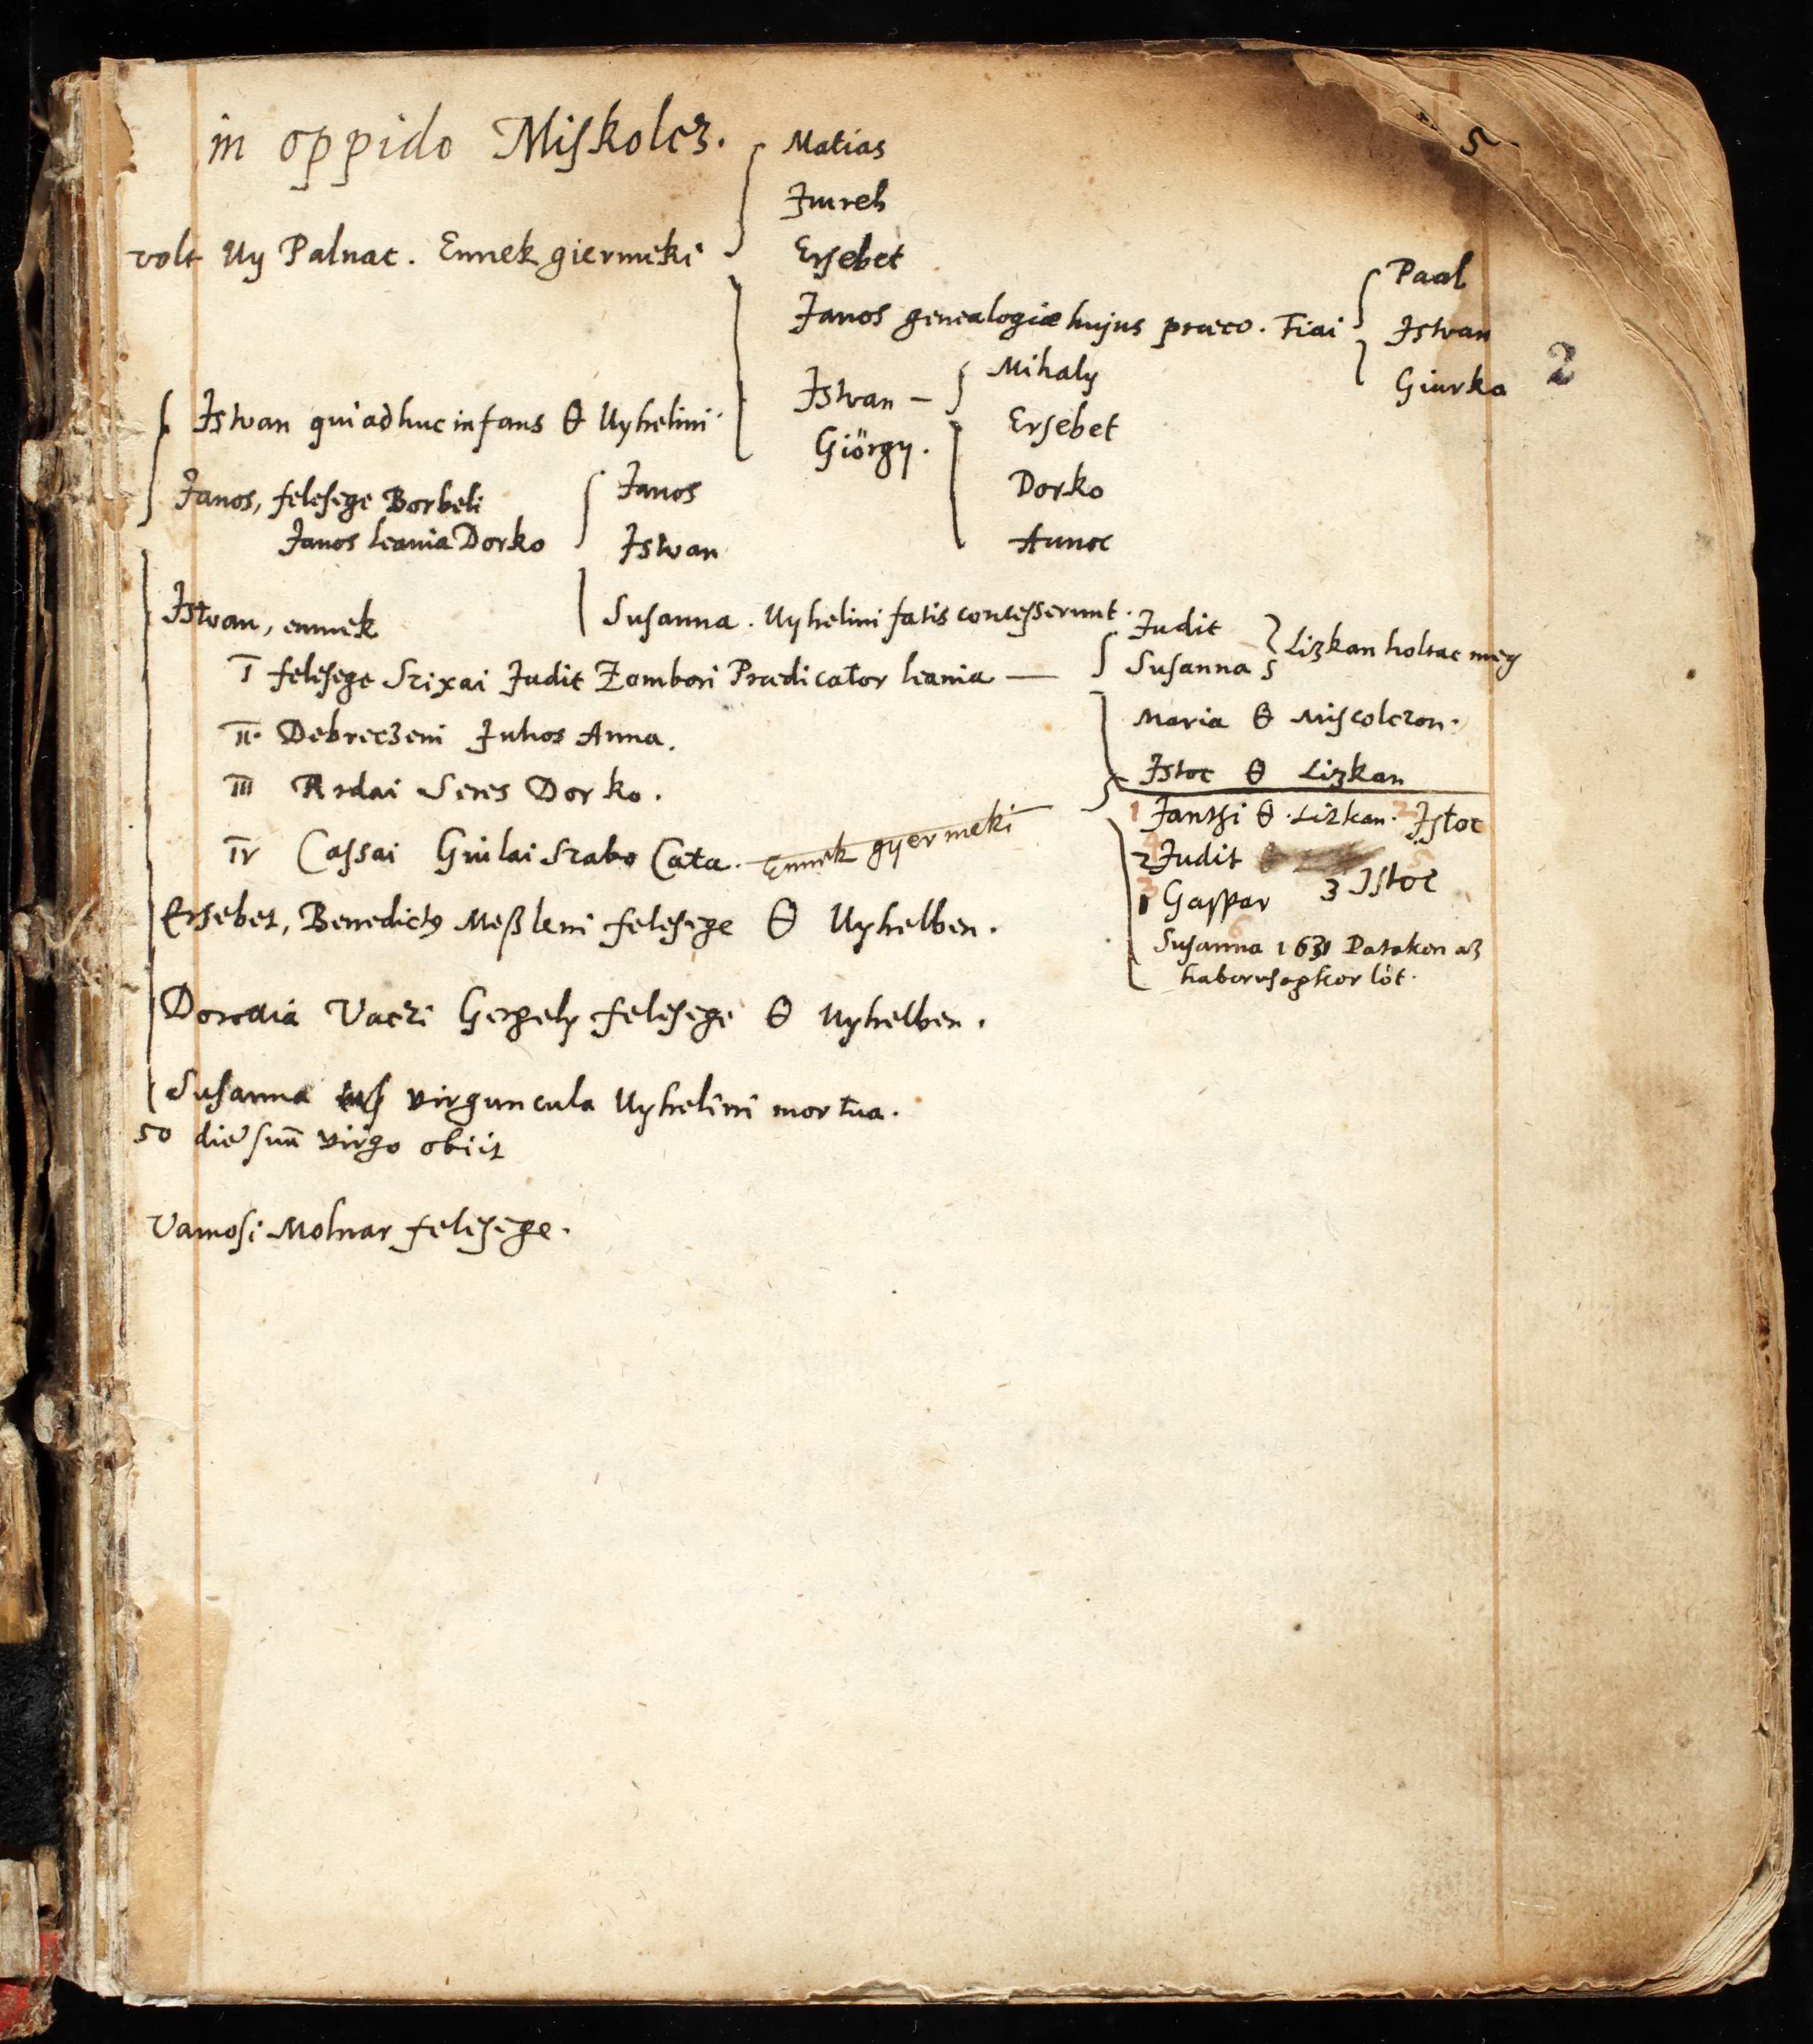 in oppido Miskolcz.
5
volt Uy Palnac. Ennek giermeki
Matias
Imreh
Ersebet
Janos genealogiæ hujus præco. Fiai
Paal
Istvan
Giurka
2
Istvan
Mihaly
Ersebet
Dorko
Annoc
Giörgy.
Istvan qui adhuc infans θ Uyhelini
Janos, felesege Borbeli
Janos leania Dorko
Janos
Istvan
Susanna. Uyhelini fatis concesserunt.
Istvan, ennek
I felesege Szixai Judit Zombori Prædicator leania —
Judit
Susanna
Lizkan holtac meg
Maria θ Miscolczon.
Istoc θ Lizkan
II. Debreczeni Juhos Anna.
III Seres Dorko.
IV Cassai Giulai Szabo Cata. Ennek gyermeki
1 Jantsi θ Lizkan. 2 Istoc
2 Judit
3 Istoc
Gaspar
Susanna 1631 Patakon az
haborusagkor löt.
Ersebet, Benedictus Meßleni felesege θ Uyhelben.
Dorottia Vaczi Gergely felesege θ Uyhelben.
Susanna virguncula Uyhelini mortua.
50 virgo obiit
Vamosi Molnar felesege.